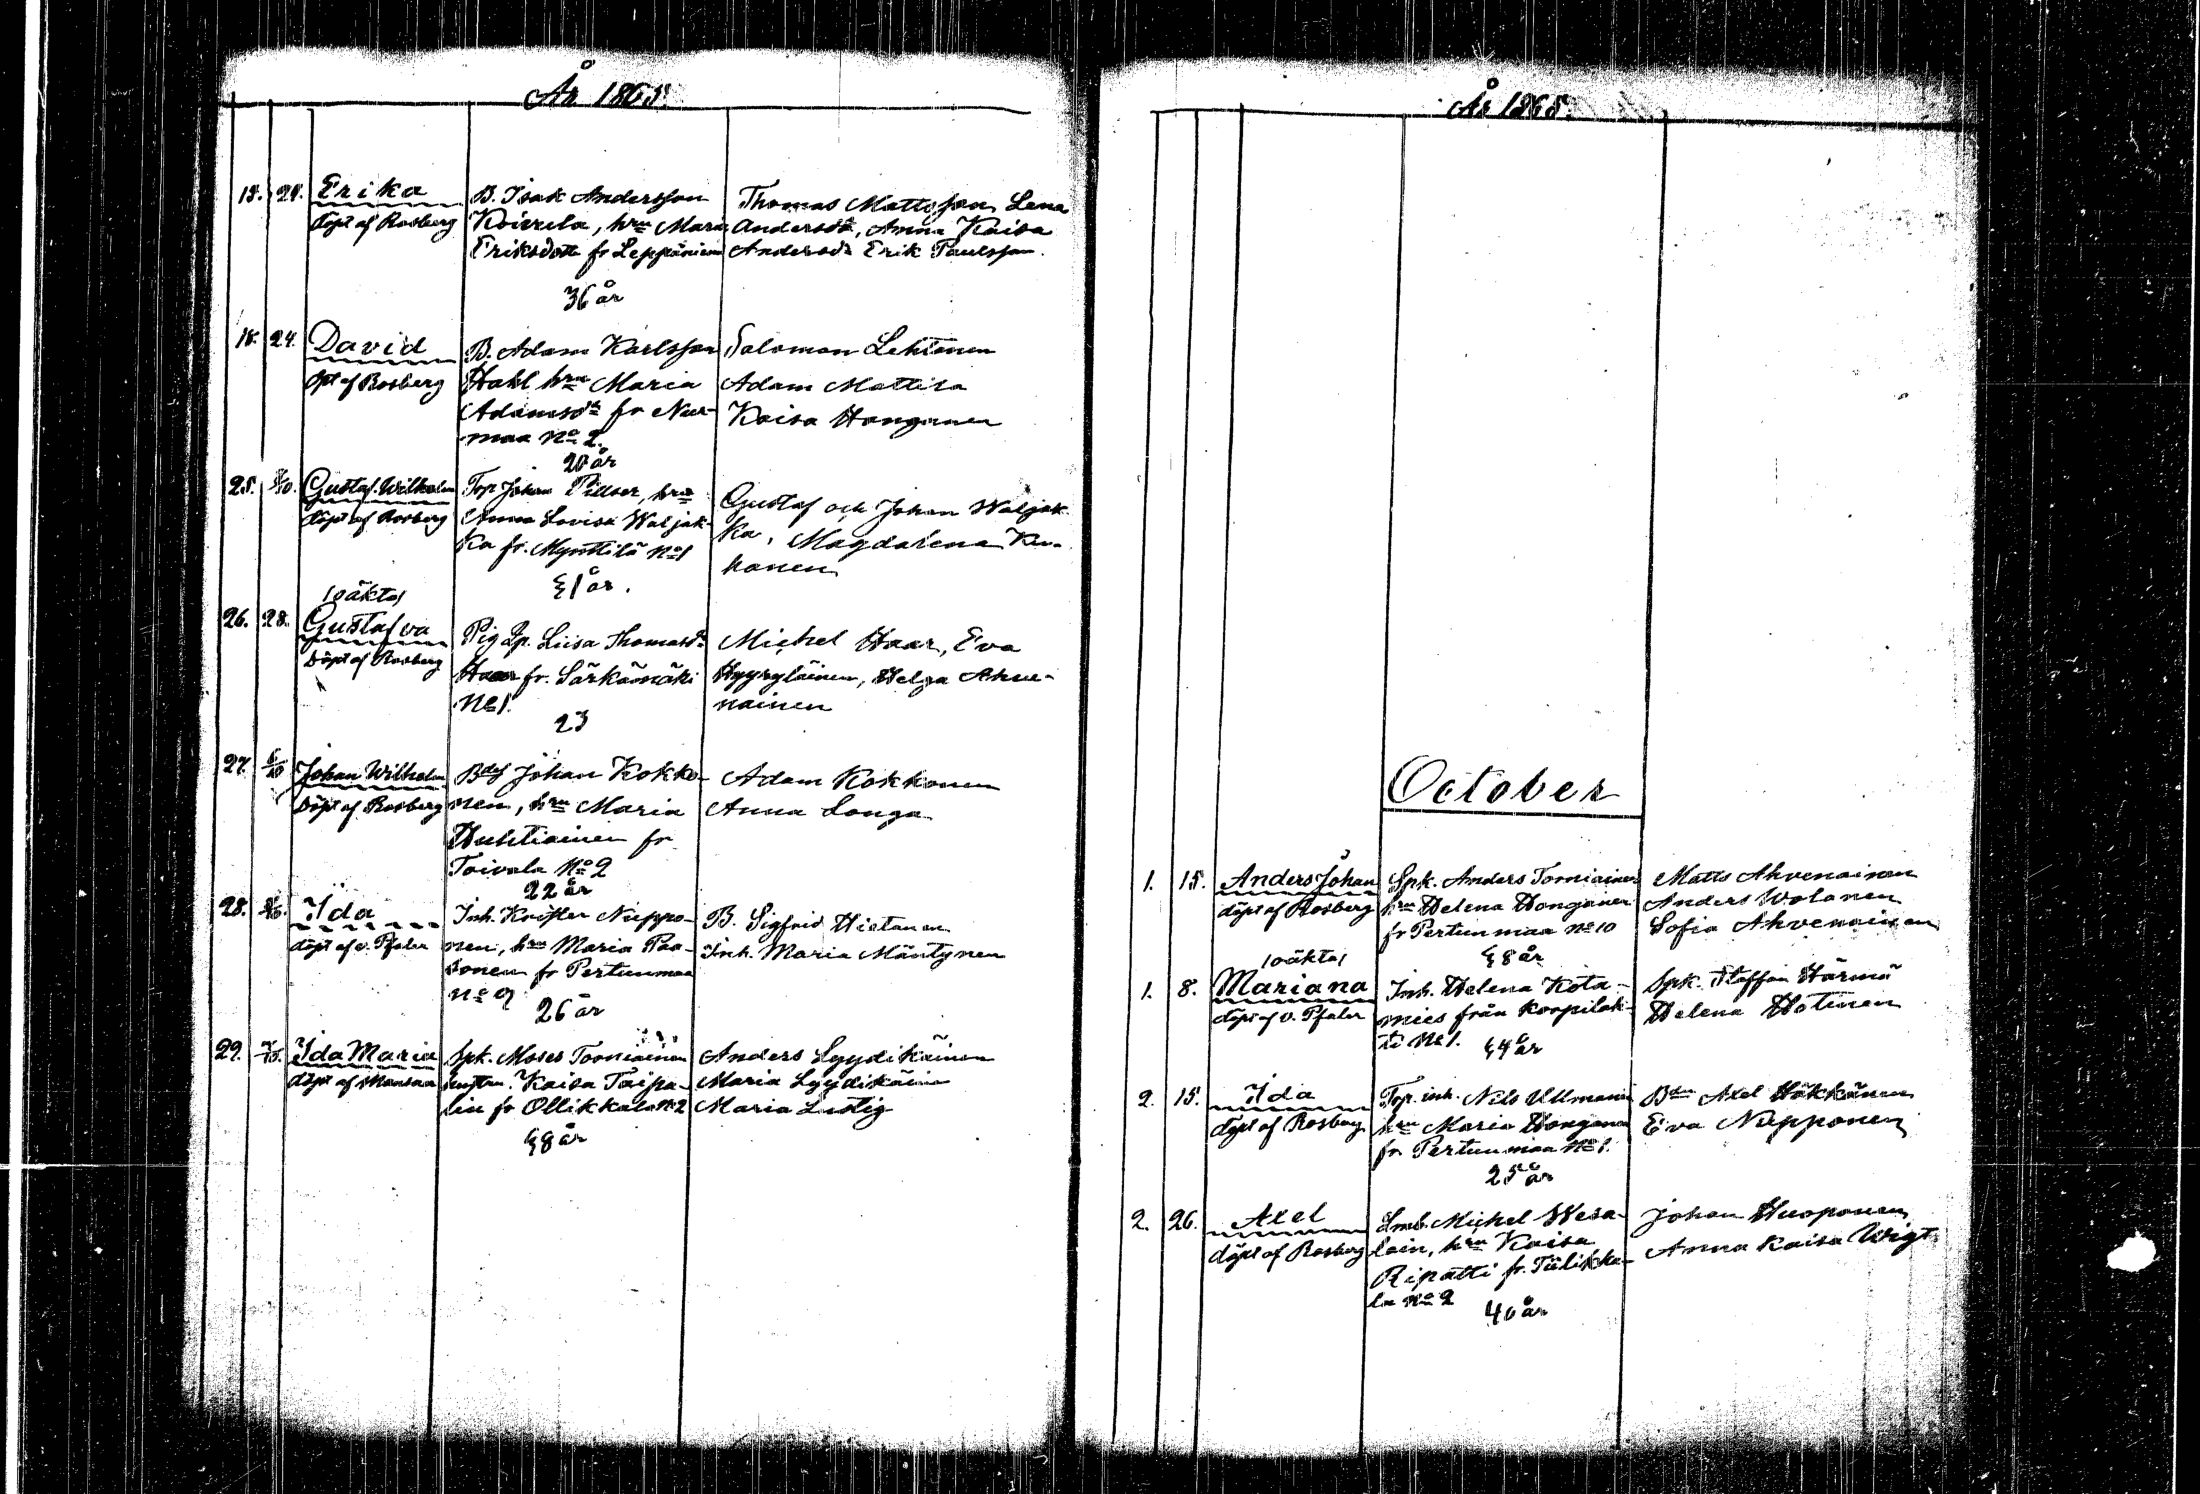 År 1865.
18. 24. Erika
döpt af Rosberg
B. Isak Andersson
Koirela, hru Maria
Eriksdott fr Leppäniemi
36 år
Thomas Mattsson Lena
Andersdr, Anna Kaisa
Andersdr Erik Paulsson.
18. 24. David
dpt af Rosberg
B. Adam Karlsson
Hahl hru Maria
Adamsdr fr Nur-
maa No 2.
20 år
Salomon Lehtonen
Adam Mattila
Kaisa Honganen
25. Gustaf Wilhelm
döpt af Rosberg
Torp Johan Pillser, hru
Anna Lovisa Waljak-
ka fr. Mynttilä No 1
41 år.
Gustaf och Johan Waljak-
ka, Magdalena Ker-
honen
/oäkta/
26. 28. Gustafva
Döpt af Rosberg
Pig Lp. Liisa Thomasdr
Haar fr. Särkämäki
No 1.
23
Michel Haar, Eva
Hyyryläinen, Helga Ahve-
nainen
27. 6/10 Johan Wilhelm
Döpt af Rosberg
Bdsf Johan Kokko-
nen, hru Maria
Huhtiainen fr
Toivola No 2
22 år
Adam Kokkonen
Anna Longa
28. Ida
döpt af v. Pfaler
Inh. Krister Niippo-
nen, hru Maria Paa-
sonen fr Pertunmaa
No 9
26 år
B. Sigfrid Hietanen
Inh. Maria Mäntynen
29. Ida Maria
döpt af Mansaa
Spk. Moses Torniainen
hustru. Kaisa Taipa-
lin fr Ollikkala No 2
48 år
Anders Lyydikäinen
Maria Lyydikäine
Maria Lustig
År 1865.
October
1. 15. Anders Johan
döpt af Rosberg
Spk. Anders Torniainen
hru Helena Honganen
fr Pertunmaa No 10
48 år
Matts Ahvenainen
Anders Wolanen
Sofia Ahvenainen
/oäkta/
1. 8. Mariana
döpt af v. Pfaler
Inh. Helena Kota-
mies från Korpilak-
ti No 1.
44 år
Spk. Staffan Härmä
Helena Hotinen
2. 15. Ida
döpt af Rosberg
Torp. inh. Nils Ullmanen
hru Maria Honganen
fr Pertunmaa No 1.
25 år
Bdn Axel Häkkänen
Eva Niipponen
2. 26. Axel
döpt af Rosberg
Lmb. Michel Wesa-
lain, hru Kaisa
Ripatti fr. Tiilikka-
la No 2
40 år
Johan Huoponen
Anna Kaisa Wigt